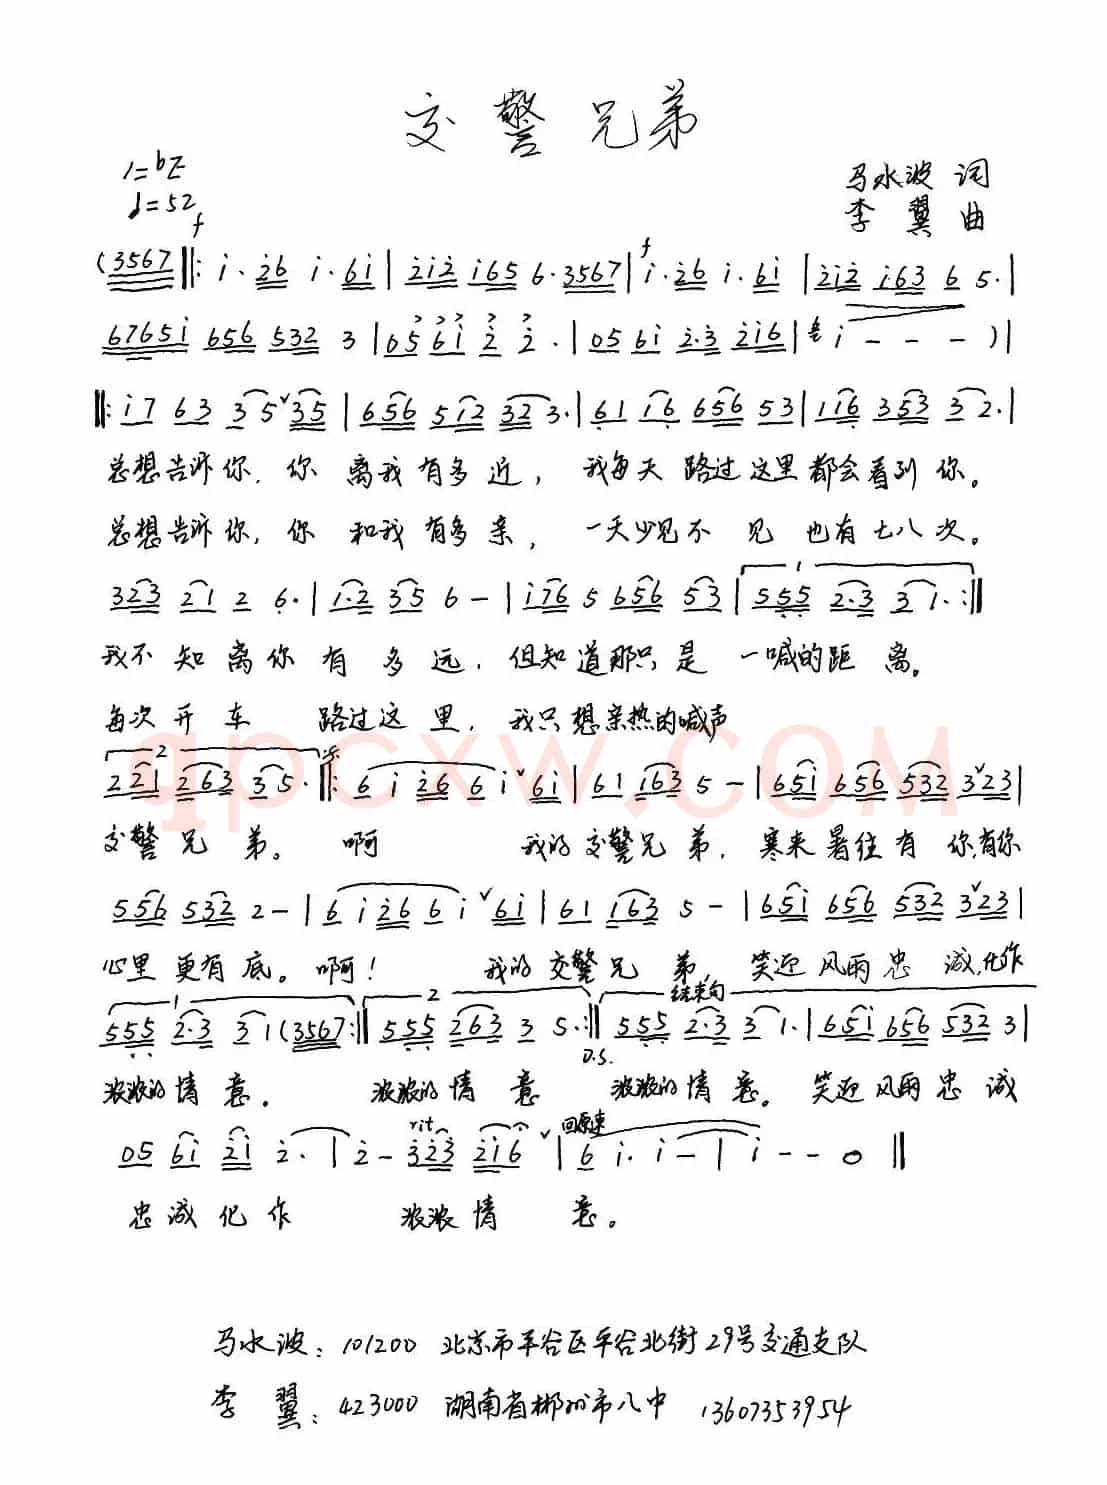 交警兄弟
1=bE
♩=52
马水波 词
李翼 曲
f
f
(3567‖: i·26 i·6i | 2i2 i65 6·3567 | i·26 i·6i | 2i2 i63 6 5· |
6765i 656 532 3 | 05 6i 2 2· | 05 6i 2·3 2i6 | i - - - ) |
‖: i7 63 35 35 | 656 5i2 323· | 61 i6 656 53 | 1i6 353 32· |
总想告诉你,你离我有多近,我每天路过这里都会看到你。
总想告诉你,你和我有多亲,一天少见不见也有七八次。
1
323 21 2 6· | i·2 35 6 - | i76 5 656 53 | 555 2·3 31· :‖
我不知离你有多远,但知道那只是一喊的距离。
每次开车路过这里,我只想亲热的喊声
2
221 263 35· ‖: 6i 26 6i 6i | 61 i63 5 - | 65i 656 532 323 |
qpcxw.com
交警兄弟。啊 我的交警兄弟,寒来暑往有你,有你
556 532 2 - | 6i 26 6i 6i | 61 i63 5 - | 65i 656 532 323 |
心里更有底。啊! 我的交警兄弟,笑迎风雨忠诚,化作
1 2 结束句
555 2·3 31(3567 :‖ 555 263 3 5· :‖ 555 2·3 31· | 65i 656 532 3 |
D.S.
浓浓的情意。浓浓的情意 浓浓的情意。笑迎风雨忠诚
rit 回原速
05 6i 2i 2· | 2 - 323 2i6 | 6 i· i - | i - - 0 ‖
忠诚化作 浓浓情意。
马水波:101200 北京市平谷区平谷北街29号交通支队
李翼:423000 湖南省郴州市八中 13607353954